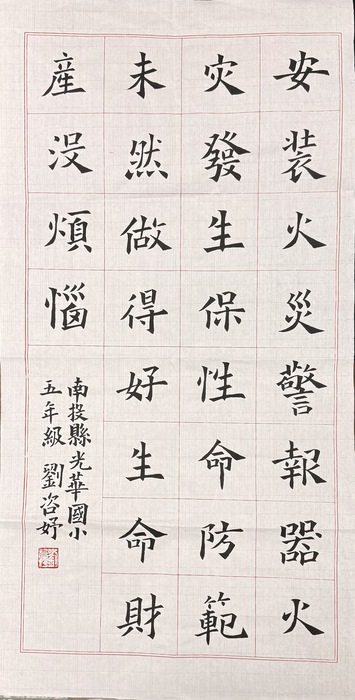 安裝火災警報器火
灾發生保性命防範
未然做得好生命財
產沒煩惱
南投縣光華國小
五年級 劉咨妤